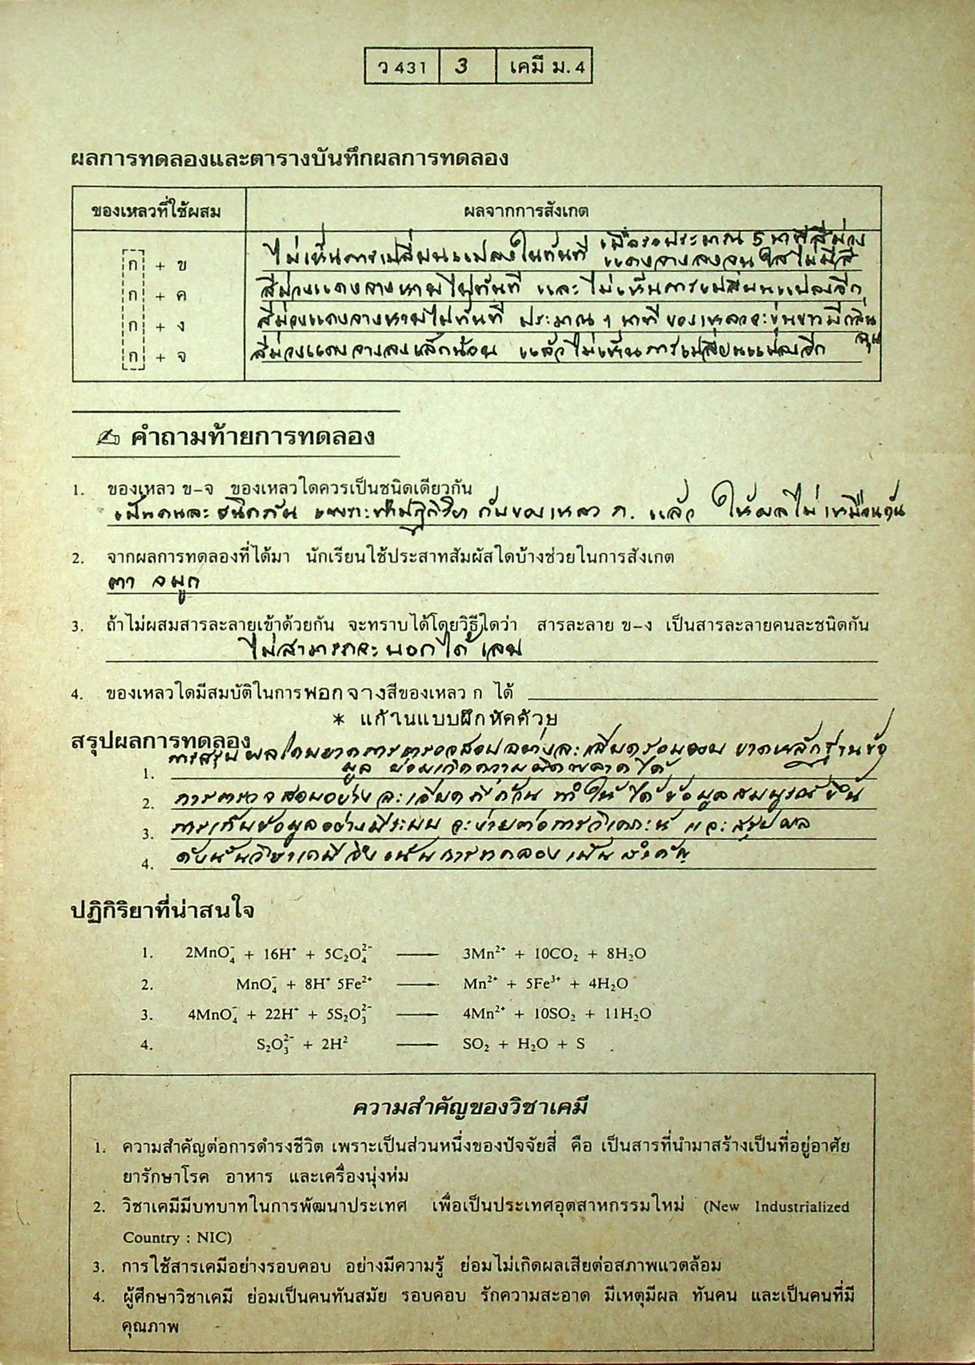 ว 431 3 เคมี ม. 4
ผลการทดลองและตารางบันทึกผลการทดลอง
ของเหลวที่ใช้ผสม ผลจากการสังเกต
ก + ข ไม่เห็นการเปลี่ยนแปลงในทันที เมื่อรอประมาณ 5 นาที สีม่วง
แดงจางลงจนใสไม่มีสี
ก + ค สีม่วงแดงจางหายไปทันที และไม่เห็นการเปลี่ยนแปลงอีก
ก + ง สีม่วงแดงจางหายไปทันที ประมาณ 1 นาที ของเหลวจะขุ่นขาวมีกลิ่น
ฉุน
ก + จ สีม่วงแดงจางลงเล็กน้อย แล้วไม่เห็นการเปลี่ยนแปลงอีก
คำถามท้ายการทดลอง
1. ของเหลว ข-จ ของเหลวใดควรเป็นชนิดเดียวกัน
เป็นคนละชนิดกัน เพราะทำปฏิกิริยากับของเหลว ก. แล้ว ให้ผลไม่เหมือนกัน
2. จากผลการทดลองที่ได้มา นักเรียนใช้ประสาทสัมผัสใดบ้างช่วยในการสังเกต
ตา จมูก
3. ถ้าไม่ผสมสารละลายเข้าด้วยกัน จะทราบได้โดยวิธีใดว่า สารละลาย ข-ง เป็นสารละลายคนละชนิดกัน
ไม่สามารถจะบอกได้เลย
4. ของเหลวใดมีสมบัติในการฟอกจางสีของเหลว ก ได้
* แก้ในแบบฝึกหัดด้วย
สรุปผลการทดลอง
1. การสรุปผลโดยขาดการตรวจสอบอย่างละเอียดรอบคอบ ขาดหลักฐานข้อ
มูล ย่อมเกิดความผิดพลาดได้
2. การตรวจสอบอย่างละเอียดถี่ถ้วน ทำให้ได้ข้อมูลสมบูรณ์ขึ้น
3. การเก็บข้อมูลอย่างมีระบบ จะง่ายต่อการวิเคราะห์ และสรุปผล
4. ดังนั้นวิชาเคมีจึงเน้นการทดลองเป็นสำคัญ
ปฏิกิริยาที่น่าสนใจ
1. 2MnO₄⁻ + 16H⁺ + 5C₂O₄²⁻ —— 3Mn²⁺ + 10CO₂ + 8H₂O
2. MnO₄⁻ + 8H⁺ 5Fe²⁺ —— Mn²⁺ + 5Fe³⁺ + 4H₂O
3. 4MnO₄⁻ + 22H⁺ + 5S₂O₃²⁻ —— 4Mn²⁺ + 10SO₂ + 11H₂O
4. S₂O₃²⁻ + 2H² —— SO₂ + H₂O + S
ความสำคัญของวิชาเคมี
1. ความสำคัญต่อการดำรงชีวิต เพราะเป็นส่วนหนึ่งของปัจจัยสี่ คือ เป็นสารที่นำมาสร้างเป็นที่อยู่อาศัย
ยารักษาโรค อาหาร และเครื่องนุ่งห่ม
2. วิชาเคมีมีบทบาทในการพัฒนาประเทศ เพื่อเป็นประเทศอุตสาหกรรมใหม่ (New Industrialized
Country : NIC)
3. การใช้สารเคมีอย่างรอบคอบ อย่างมีความรู้ ย่อมไม่เกิดผลเสียต่อสภาพแวดล้อม
4. ผู้ศึกษาวิชาเคมี ย่อมเป็นคนทันสมัย รอบคอบ รักความสะอาด มีเหตุมีผล ทันคน และเป็นคนที่มี
คุณภาพ